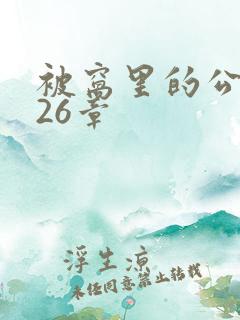 被窝里的公
26章
浮生凉
未经同意禁止转载